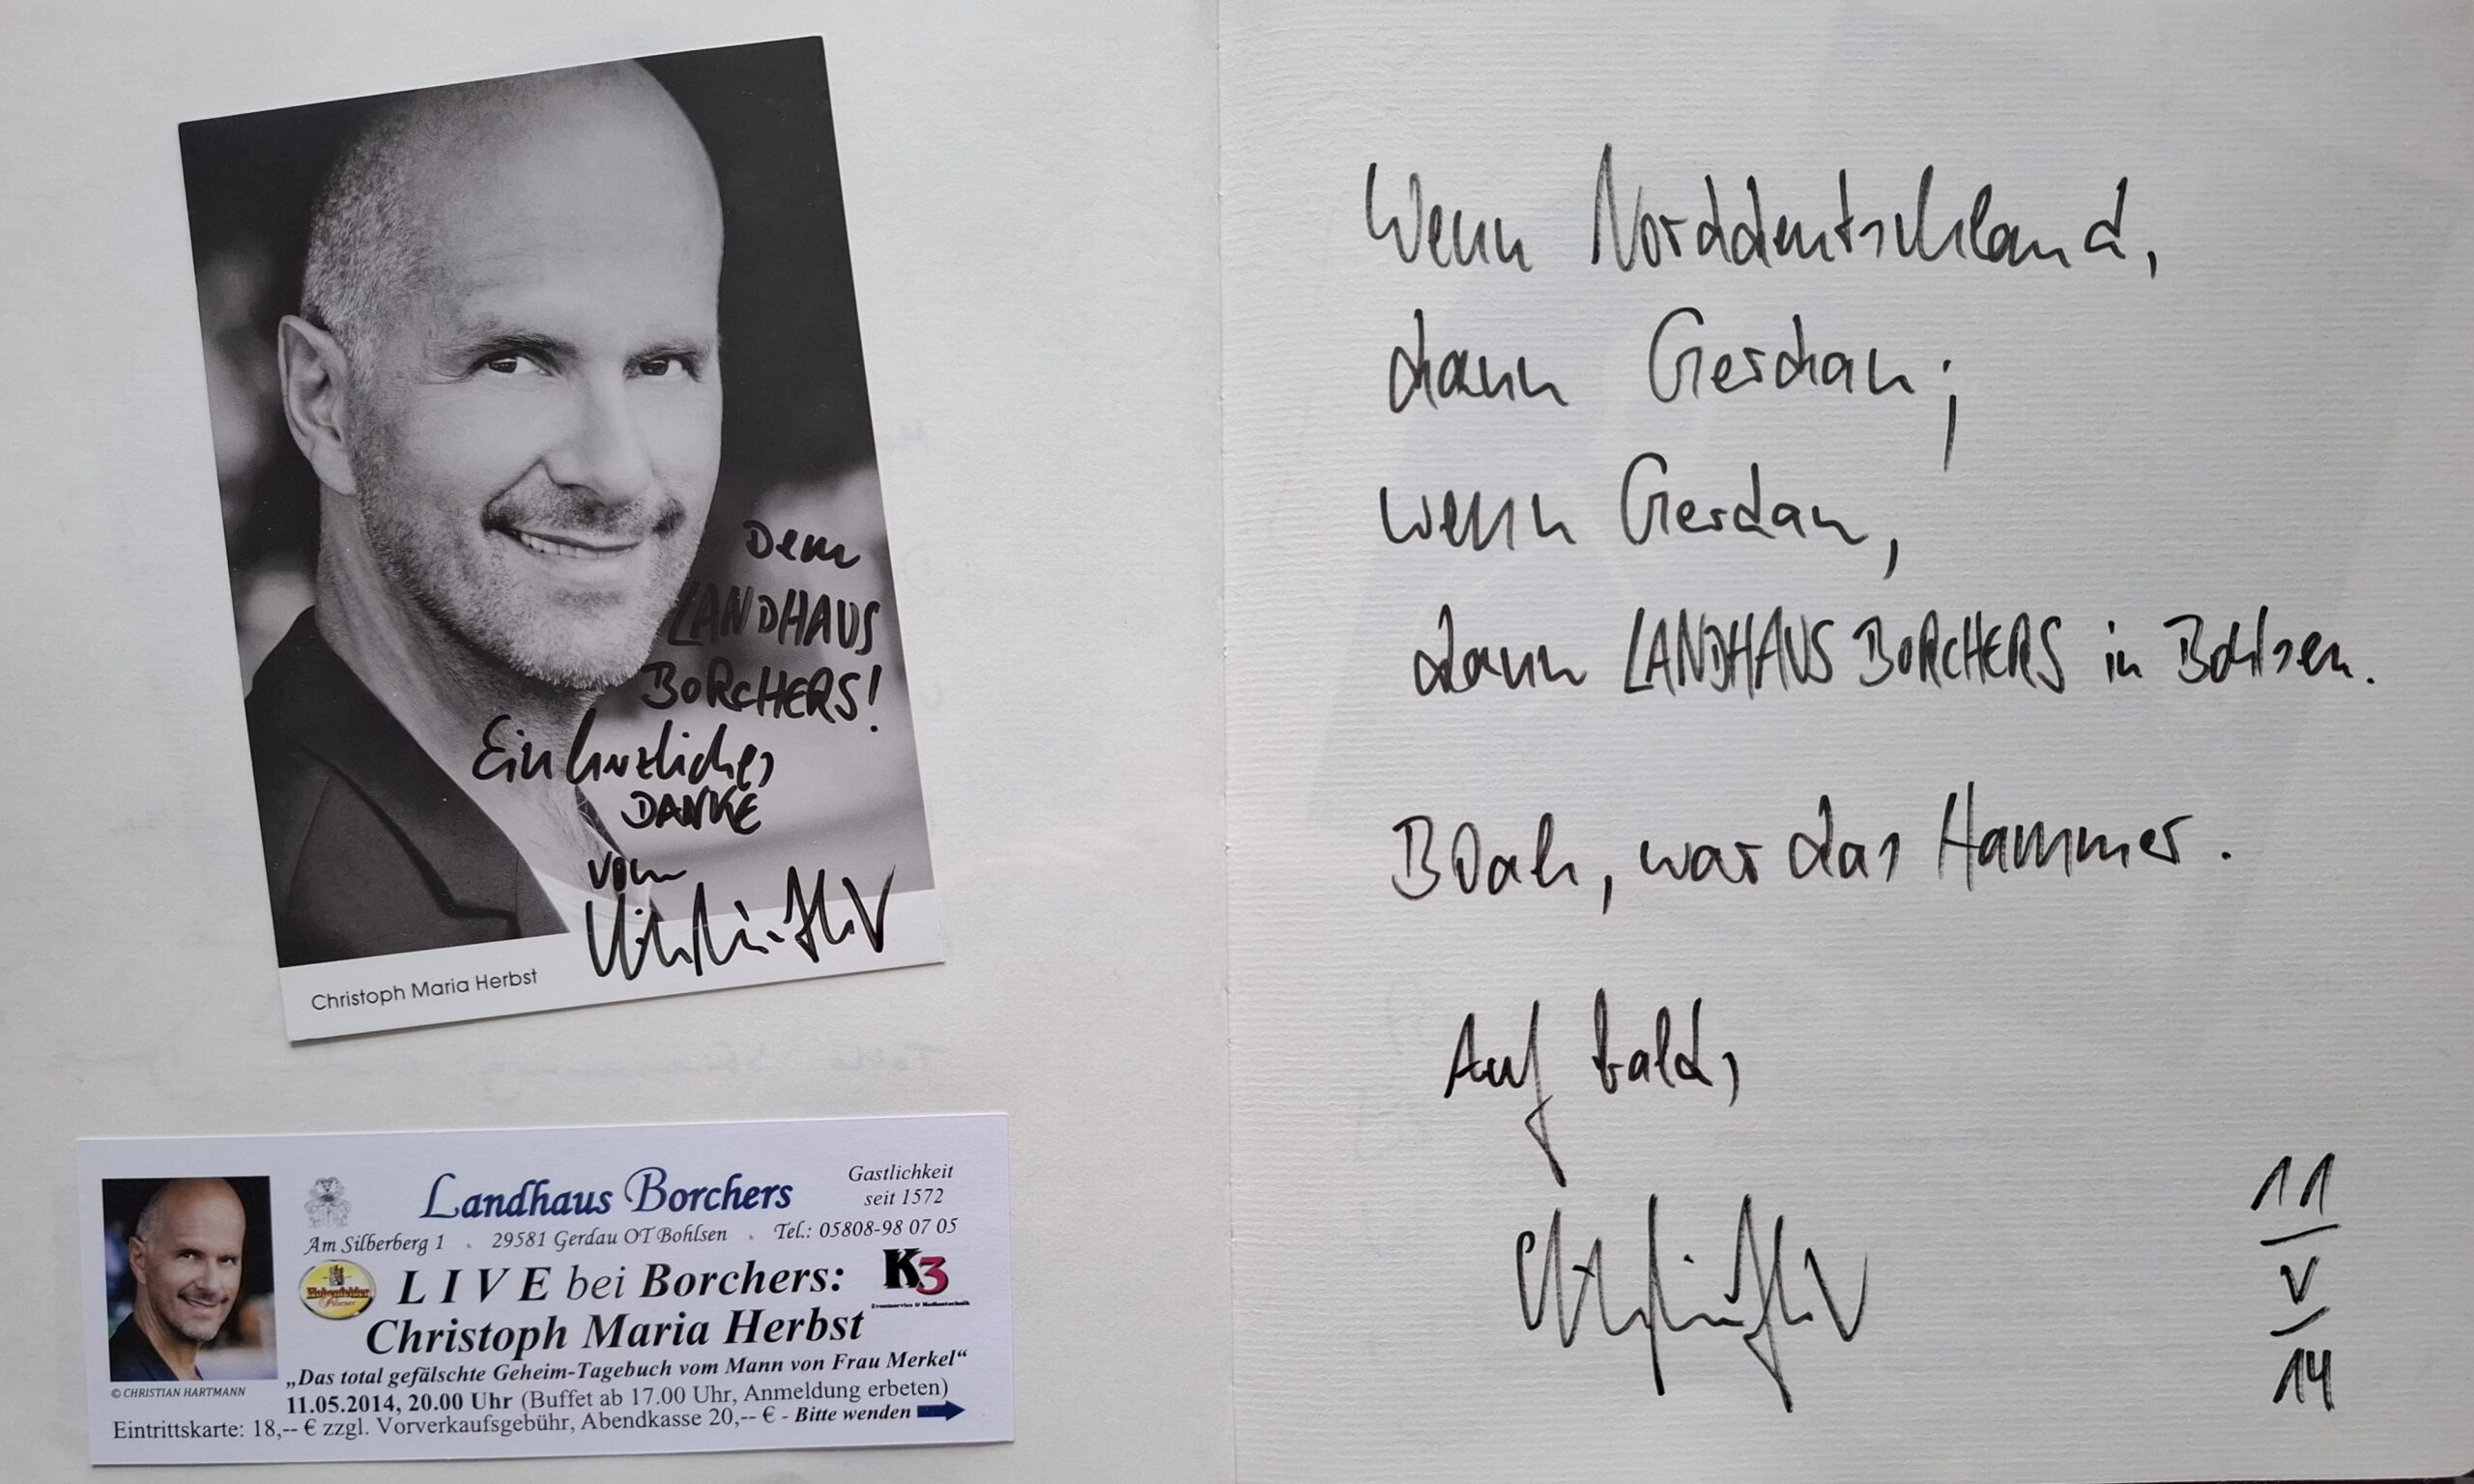 Dem
LANDHAUS
BORCHERS!
Ein herzliches
DANKE
vom
Christoph Maria Herbst
Landhaus Borchers
Gastlichkeit
seit 1572
Am Silberberg 1 . 29581 Gerdau OT Bohlsen . Tel.: 05808-98 07 05
LIVE bei Borchers:
K3
Eventservice & Medientechnik
Christoph Maria Herbst
„Das total gefälschte Geheim-Tagebuch vom Mann von Frau Merkel“
© CHRISTIAN HARTMANN
11.05.2014, 20.00 Uhr (Buffet ab 17.00 Uhr, Anmeldung erbeten)
Eintrittskarte: 18,-- € zzgl. Vorverkaufsgebühr, Abendkasse 20,-- € - Bitte wenden
Wenn Norddeutschland,
dann Gerdau;
wenn Gerdau,
dann LANDHAUS BORCHERS in Bohlsen.
BOah, war das Hammer.
Auf bald,
11
V
14